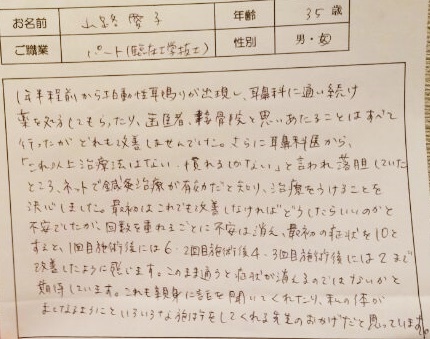 お名前 山路 愛子 年齢 35 歳
ご職業 パート(臨床工学技士) 性別 男・女
1年半程前から拍動性耳鳴りが出現し、耳鼻科に通い続け
薬を処方してもらったり、歯医者、整骨院と思いあたることはすべて
行ったがどれも改善しませんでした。さらに耳鼻科医から、
「これ以上治療法はない・慣れるしかない」と言われ落胆していた
ところ、ネットで鍼灸治療が有効だと知り、治療をうけることを
決心しました。最初はこれでも改善しなければどうしたらいいのかと
不安でしたが、回数を重ねるごとに不安は消え、最初の症状を10と
すると、1回目施術後には6・2回目施術後4・3回目施術後には2まで
改善したように感じます。このまま通うと症状が消えるのではないかと
期待しています。これも親身に話を聞いてくれたり、私の体が
ましになるようにといろいろな施術をしてくれる先生のおかげだと思っています。